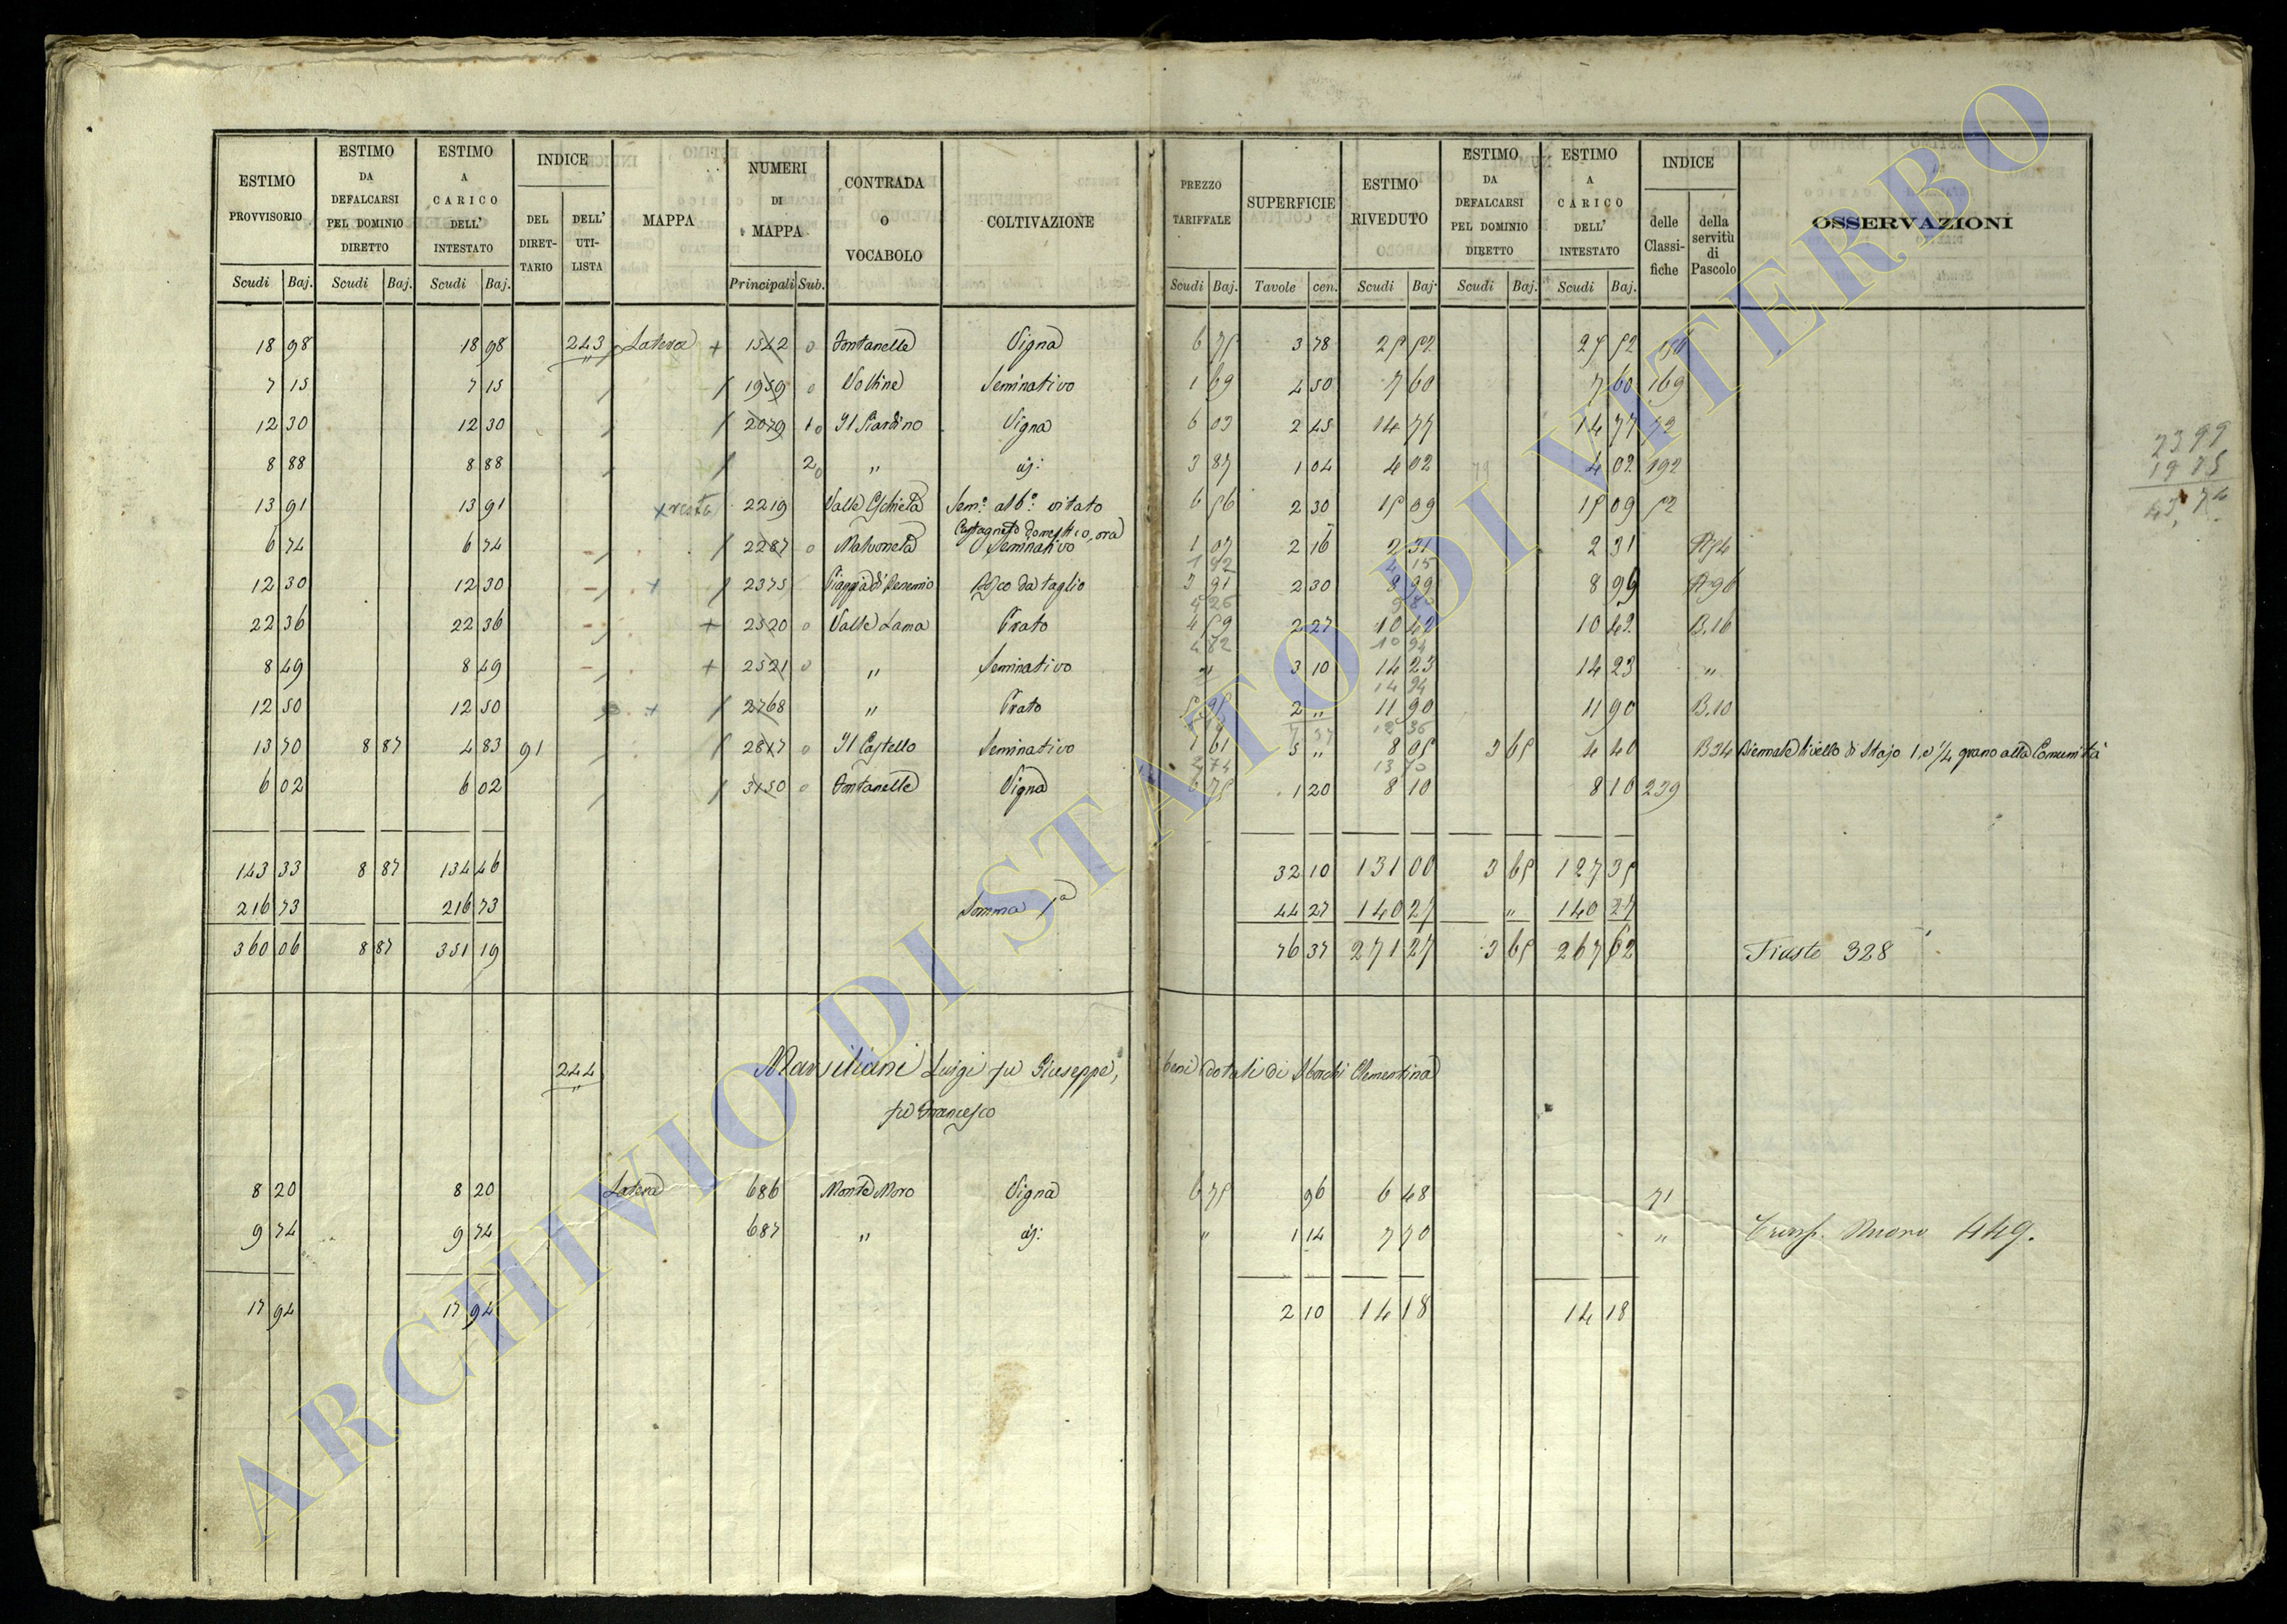 ESTIMO PROVVISORIO | ESTIMO DA DEFALCARSI PEL DOMINIO DIRETTO | ESTIMO A CARICO DELL' INTESTATO | INDICE | MAPPA | NUMERI DI MAPPA | CONTRADA O VOCABOLO | COLTIVAZIONE | PREZZO TARIFFALE | SUPERFICIE | ESTIMO RIVEDUTO | ESTIMO DA DEFALCARSI PEL DOMINIO DIRETTO | ESTIMO A CARICO DELL' INTESTATO | INDICE | OSSERVAZIONI
DEL DIRETTARIO | DELL' UTILISTA | delle Classifiche | della servitù di Pascolo
Scudi Baj. | Scudi Baj. | Scudi Baj. | Principali Sub. | Scudi Baj. | Tavole cen. | Scudi Baj. | Scudi Baj. | Scudi Baj.
18 98 | 18 98 | 243 | Latera + | 1542 0 | Fontanelle | Vigna | 6 75 | 3 78 | 25 52 | 25 52
7 15 | 7 15 | 1959 0 | Seminativo | 1 69 | 4 50 | 7 60 | 7 60 | 169
12 30 | 12 30 | 2079 1 0 | Il Giardino | Vigna | 6 03 | 2 45 | 14 77 | 14 77 | 72
8 88 | 8 88 | 2 0 | " | id: | 3 87 | 1 04 | 4 02 | 4 02 | 192
13 91 | 13 91 | x resta | 2219 | Sem.º alb.º vitato | 6 56 | 2 30 | 15 09 | 15 09 | 52
6 74 | 6 74 | 2287 0 | Castagneto domestico, ora Seminativo | 1 07 | 2 16 | 2 31 | 2 31
1 92 | 4 15
12 30 | 12 30 | 2375 | Bosco da taglio | 3 91 | 2 30 | 8 99 | 8 99 | A 96
4 26
22 36 | 22 36 | + | 2520 0 | Valle Lama | Prato | 4 59 | 2 27 | 10 42 | 10 42 | B.16
4 82 | 10 94
8 49 | 8 49 | + | 2521 0 | " | Seminativo | " | 3 10 | 14 23 | 14 23 | "
14 94
12 50 | 12 50 | 2768 | " | Prato | 5 95 | 2 " | 11 90 | 11 90 | B.10
12 36
13 70 | 8 87 | 4 83 | 91 | 2817 0 | Il Castello | Seminativo | 1 61 | 5 " | 8 05 | 3 65 | 4 40 | B 34 | Biennale livello di Stajo 1, e 1/4 grano alla Comunità
2 74 | 13 70
6 02 | 6 02 | 3150 0 | Fontanelle | Vigna | 6 75 | 1 20 | 8 10 | 8 10 | 239
143 33 | 8 87 | 134 46 | 32 10 | 131 00 | 3 65 | 127 35
216 73 | 216 73 | Somma 1ª | 44 27 | 140 27 | " | 140 27
360 06 | 8 87 | 351 19 | 76 37 | 271 27 | 3 65 | 267 62 | 328
23 99
19 75
43, 74
244 | Marsiliani Luigi fu Giuseppe, beni dotali di Clementina
fu Francesco
8 20 | 8 20 | Latera | 686 | Monte Moro | Vigna | 6 75 | 96 | 6 48 | 71
9 74 | 9 74 | 687 | " | id: | " | 1 14 | 7 70 | " | 449.
17 94 | 17 94 | 2 10 | 14 18 | 14 18
ARCHIVIO DI STATO DI VITERBO